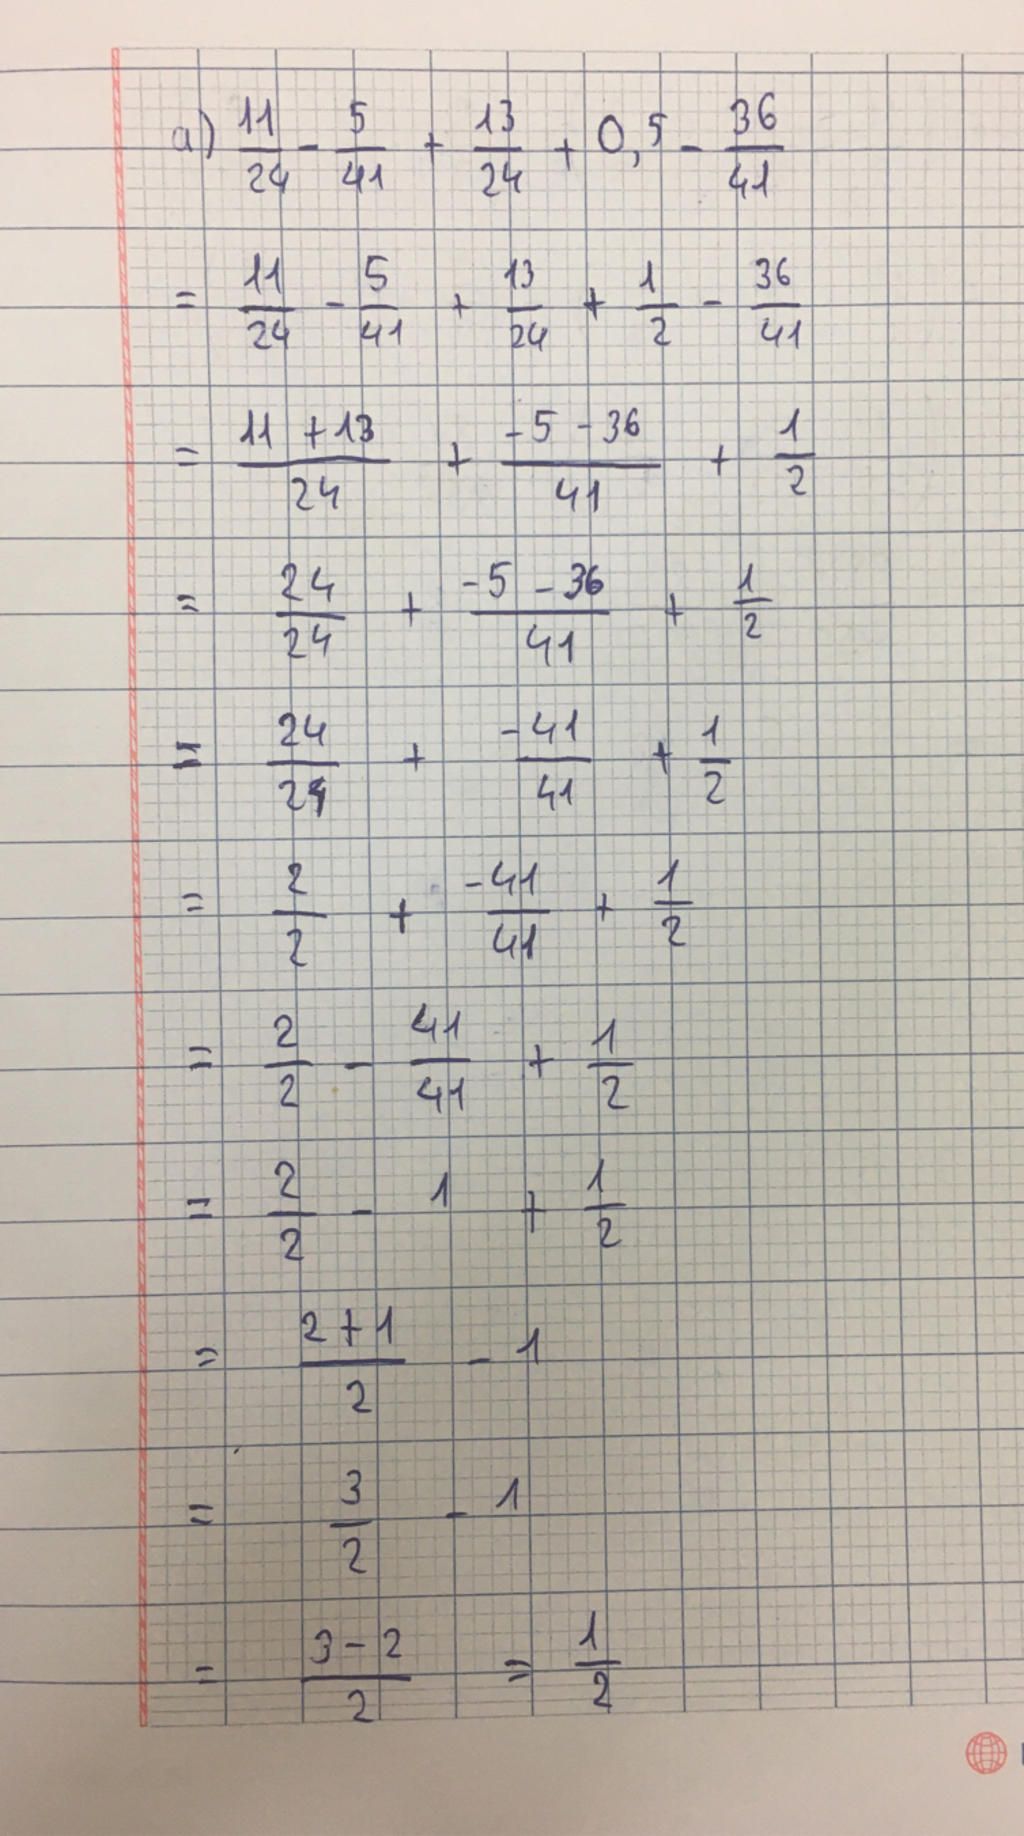 a) 11/24 - 5/41 + 13/24 + 0,5 - 36/41
= 11/24 - 5/41 + 13/24 + 1/2 - 36/41
= (11 + 13)/24 + (-5 - 36)/41 + 1/2
= 24/24 + (-5 - 36)/41 + 1/2
= 24/24 + -41/41 + 1/2
= 2/2 + -41/41 + 1/2
= 2/2 - 41/41 + 1/2
= 2/2 - 1 + 1/2
= (2 + 1)/2 - 1
= 3/2 - 1
= (3 - 2)/2 = 1/2